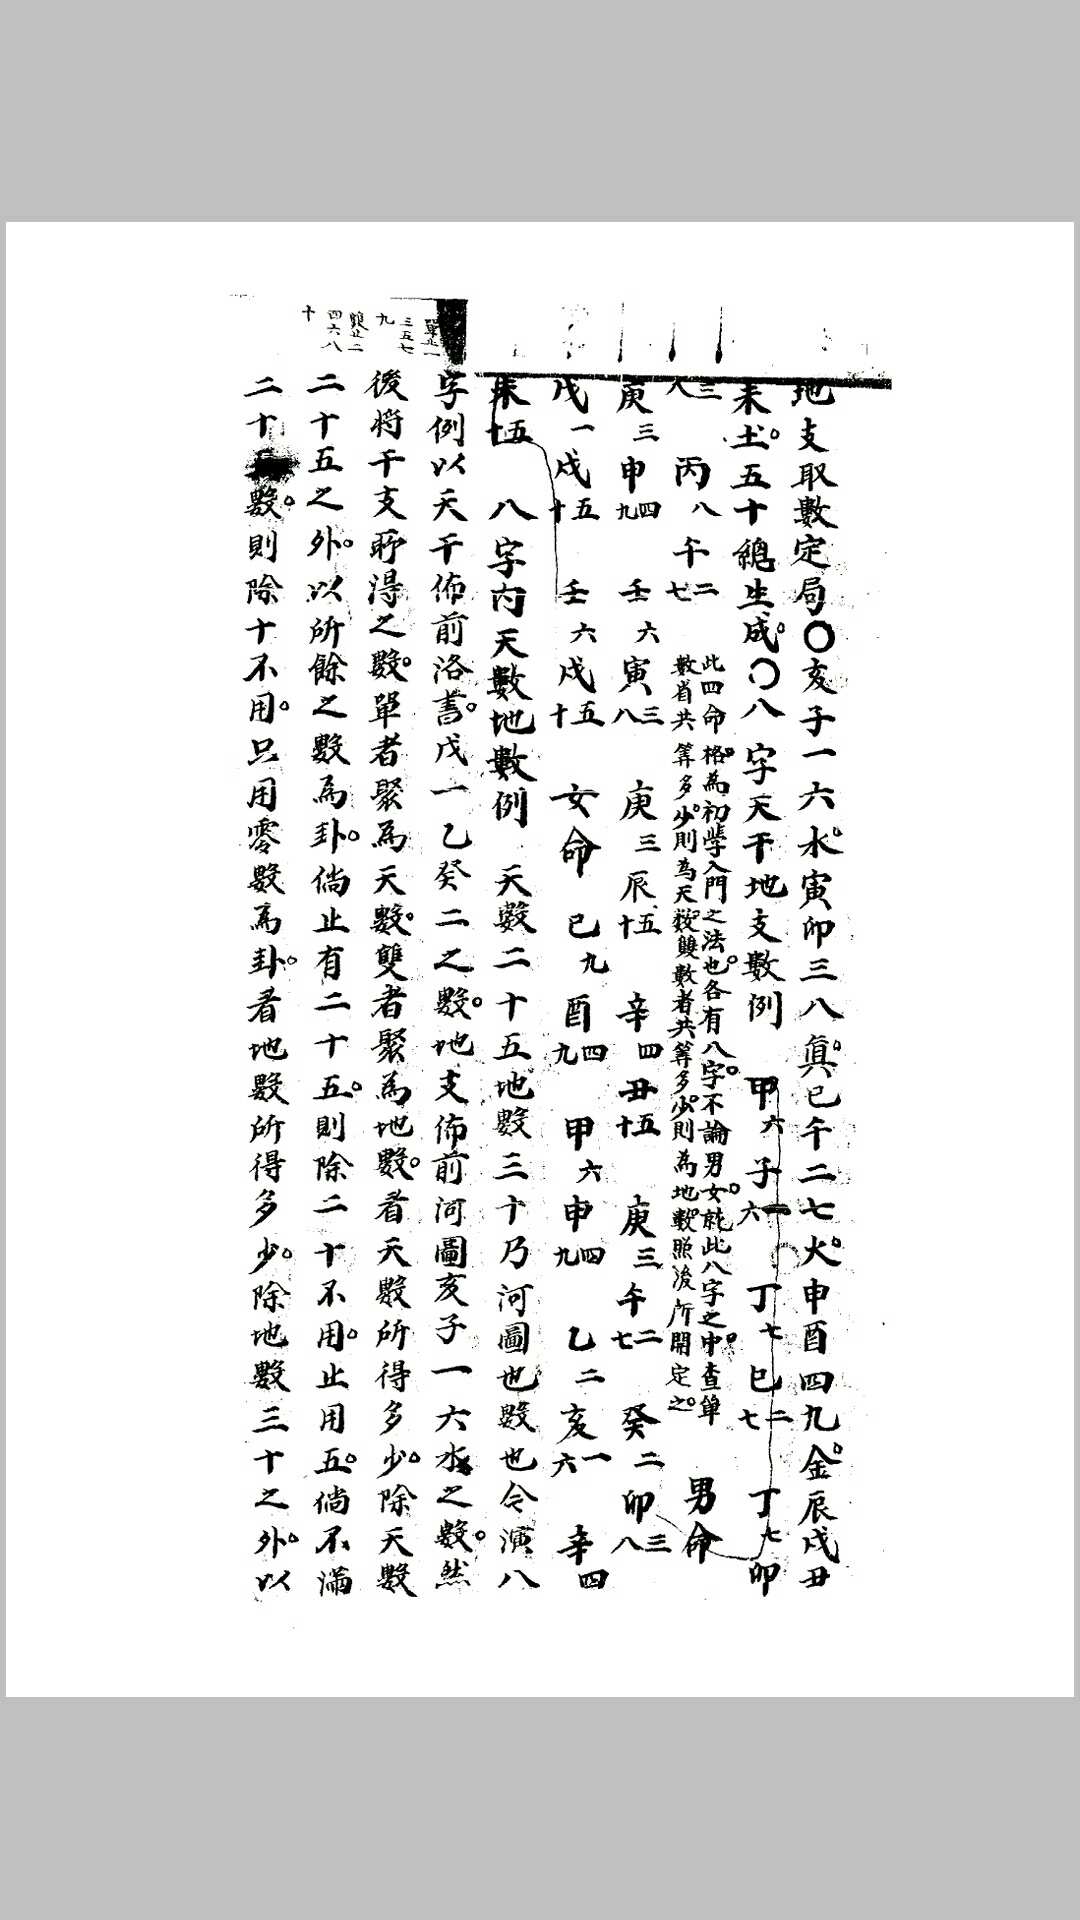 地支取數定局〇亥子一六水。寅卯三八真。巳午二七火。申酉四九金。辰戌丑
未土。五十總生成。〇八字天干地支數例 甲六子一六 丁七巳二七 丁七卯
三八 丙八午二七 此四命格。為初學入門之法也。各有八字。不論男女。就此八字之中。查單
數者共算多少。則為天數。雙數者共算多少。則為地數。照後所開定之。 男命
庚三申四九 壬六寅三八 庚三辰五十 辛四丑五十 庚三午二七 癸二卯三八
戊一戌五十 壬六戌五十 女命 己九酉四九 甲六申四九 乙二亥一六 辛四
未五十 八字內天數地數例 天數二十五地數三十乃河圖也數也今演八
字例以天干佈前洛書。戊一乙癸二之數。地支佈前河圖亥子一六水之數。然
後將干支所得之數。單者聚為天數。雙者聚為地數。看天數所得多少。除天數
二十五之外。以所餘之數為卦。倘止有二十五。則除二十不用。止用五。倘不滿
二十數。則除十不用。只用零數為卦。看地數所得多少。除地數三十之外。以
單止一
三五七
九
雙止二
四六八
十